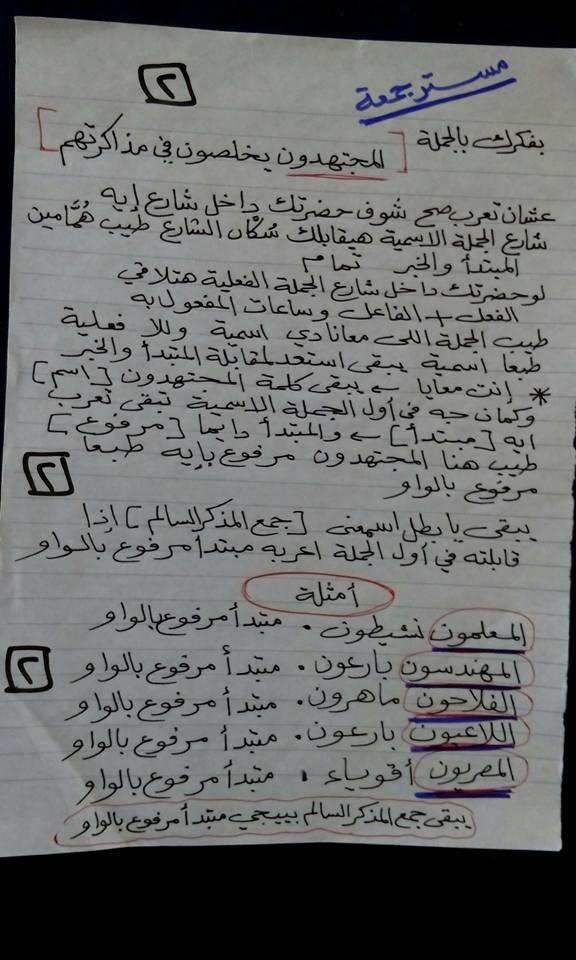 مستر جمعة
٢
بفكرك بالجملة [المجتهدون يخلصون في مذاكرتهم]
عشان تعرب صح شوف حضرتك داخل شارع إيه
شارع الجملة الاسمية هيقابلك سُكّان الشارع طيب هُمَّا مين
المبتدأ والخبر تمام
لو حضرتك داخل شارع الجملة الفعلية هتلاقي
الفعل + الفاعل وساعات المفعول به
طيب الجملة اللى معانا دي اسمية وللا فعلية
طبعا اسمية يبقى استعد لمقابلة المبتدأ والخبر
* إنت معايا ← يبقى كلمة المجتهدون [اسم]
وكمان جه في أول الجملة الاسمية تبقى تعرب
ايه [مبتدأ] ← والمبتدأ دايما [مرفوع]
طيب هنا المجتهدون مرفوع بإيه طبعا
مرفوع بالواو
٢
يبقى يا بطل اسمعنى [جمع المذكر السالم] إذا
قابلته في أول الجملة اعربه مبتدأ مرفوع بالواو
أمثلة
المعلمون نشيطون . مبتدأ مرفوع بالواو
المهندسون بارعون . مبتدأ مرفوع بالواو
٢
الفلاحون ماهرون . مبتدأ مرفوع بالواو
اللاعبون بارعون . مبتدأ مرفوع بالواو
المصريون أقوياء . مبتدأ مرفوع بالواو
يبقى جمع المذكر السالم بييجي مبتدأ مرفوع بالواو